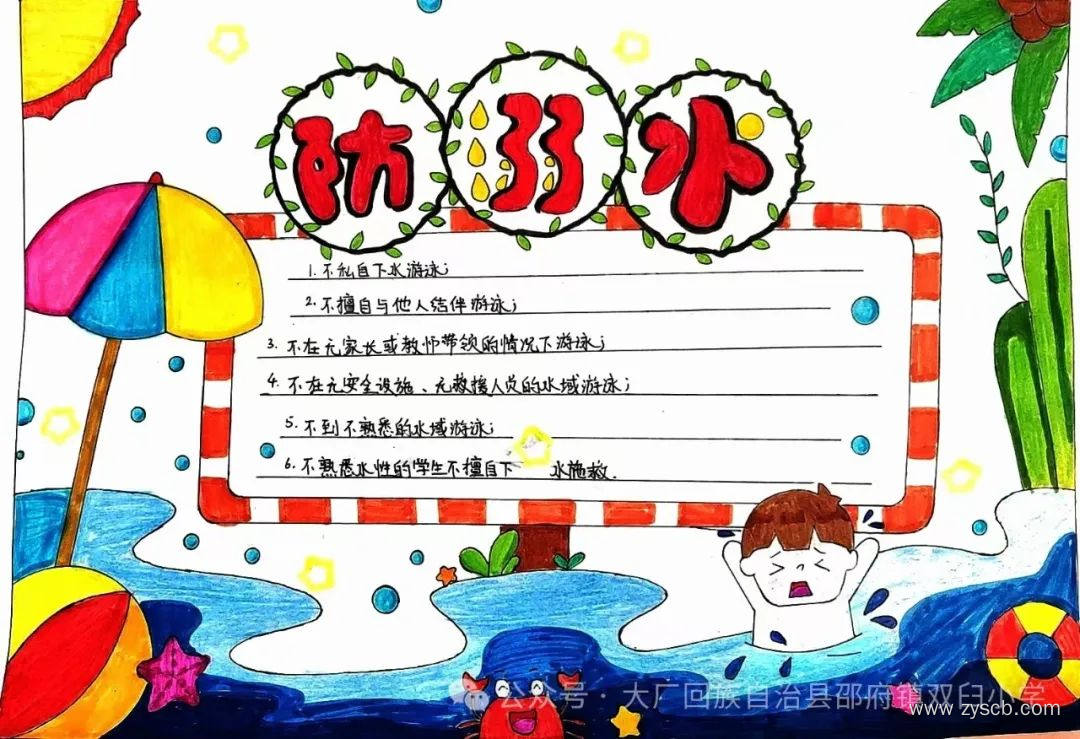 防溺水
1. 不私自下水游泳；
2. 不擅自与他人结伴游泳；
3. 不在无家长或教师带领的情况下游泳；
4. 不在无安全设施、无救援人员的水域游泳；
5. 不到不熟悉的水域游泳；
6. 不熟悉水性的学生不擅自下 水施救.
公众号 · 大厂回族自治县邵府镇双臼小学
www.zyscb.com